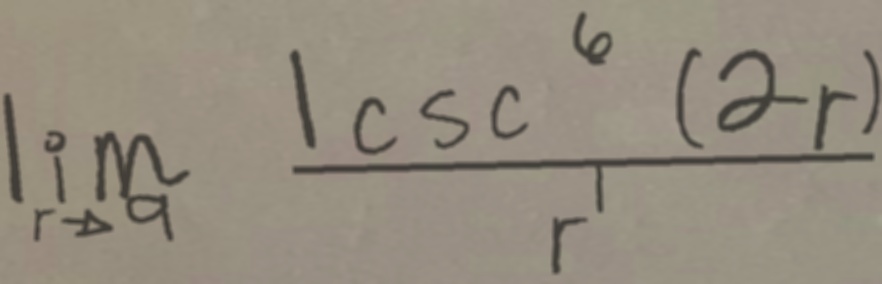 \lim_{r \to 9} \frac{1 \csc^6 (2r)}{r^1}